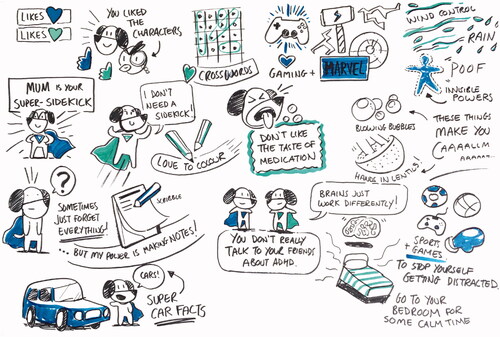 LIKES
LIKES
YOU LIKED
THE
CHARACTERS
CROSSWORDS
GAMING +
MARVEL
WIND CONTROL
RAIN
POOF
+
INVISIBLE
POWERS
MUM IS YOUR
SUPER-SIDEKICK
I DON'T
NEED A
SIDEKICK!
LOVE TO COLOUR
DON'T LIKE
THE TASTE OF
MEDICATION
BLOWING BUBBLES
HANDS IN LENTILS!
THESE THINGS
MAKE YOU
CAAAALLM
AAAAAA
?
SOMETIMES
JUST FORGET
EVERYTHING!
SCRIBBLE
... BUT MY POWER IS MAKING NOTES!
BRAINS JUST
WORK DIFFERENTLY!
YOU DON'T REALLY
TALK TO YOUR FRIENDS
ABOUT ADHD.
+ SPORTS
GAMES
TO STOP YOURSELF
GETTING DISTRACTED.
GO TO YOUR
BEDROOM FOR
SOME CALM TIME
CARS!
SUPER
CAR FACTS